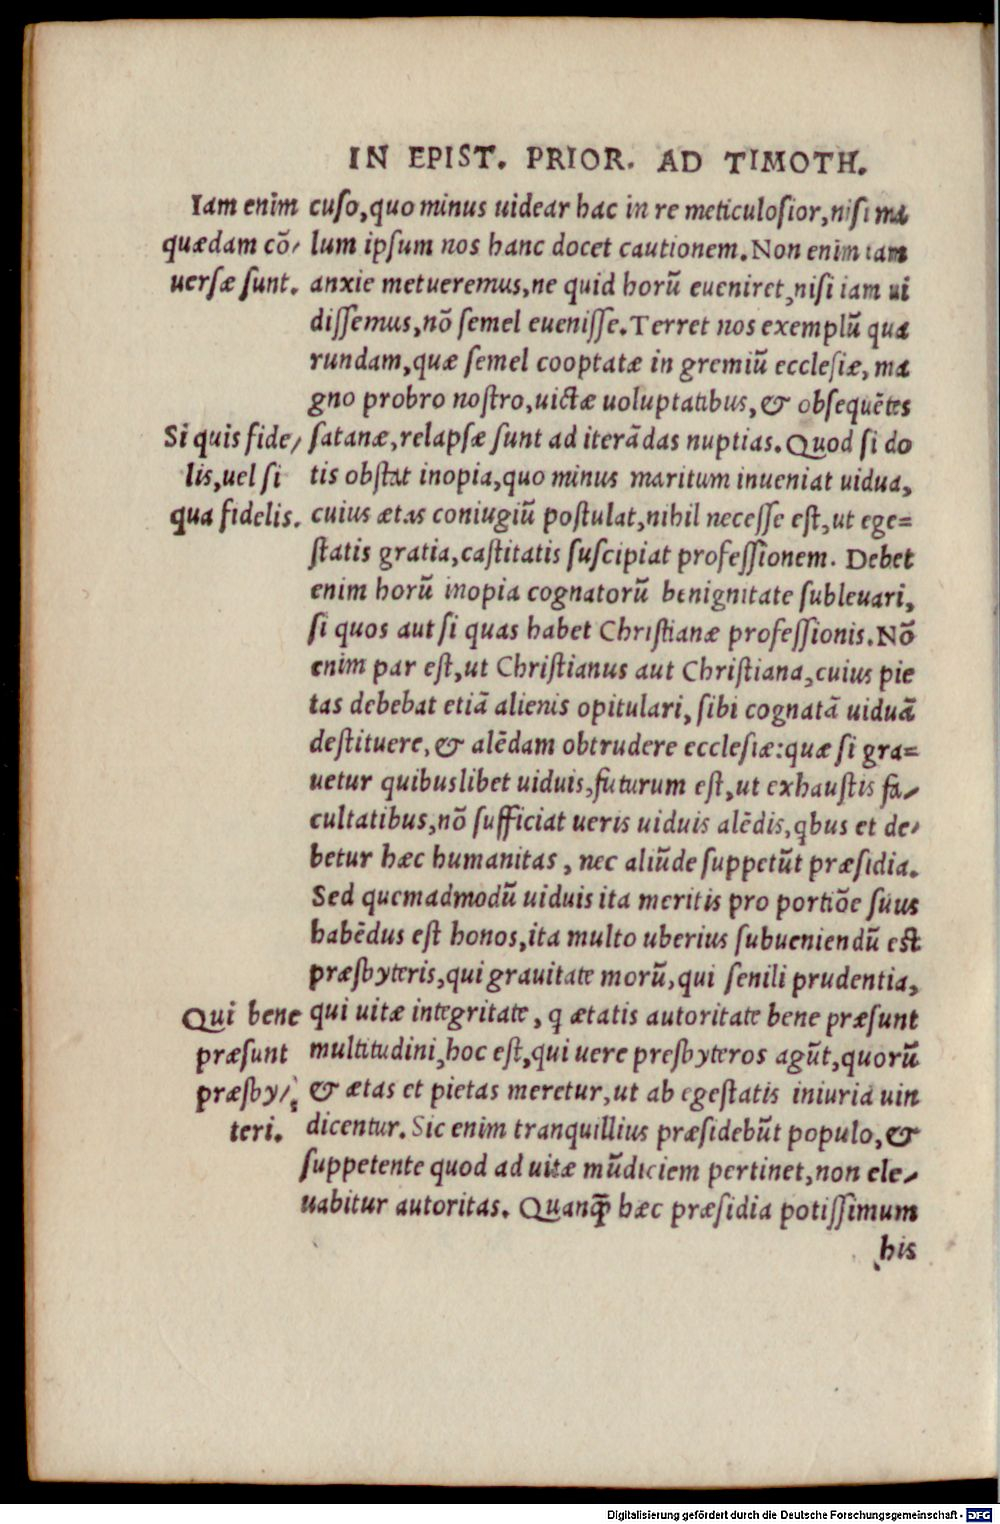 IN EPIST. PRIOR. AD TIMOTH.
Iam enim
quædam cō/
uersæ sunt.
cuso, quo minus uidear hac in re meticulosior, nisi ma
lum ipsum nos hanc docet cautionem. Non enim tam
anxie metueremus, ne quid horū eueniret, nisi iam ui
dissemus, nō semel euenisse. Terret nos exemplū qua
rundam, quæ semel cooptatæ in gremiū ecclesiæ, ma
gno probro nostro, uictæ uoluptatibus, & obsequētes
Si quis fide/
lis, uel si
qua fidelis.
satanæ, relapsæ sunt ad iterādas nuptias. Quod si do
tis obstat inopia, quo minus maritum inueniat uidua,
cuius ætas coniugiū postulat, nihil necesse est, ut ege=
statis gratia, castitatis suscipiat professionem. Debet
enim horū inopia cognatorū benignitate subleuari,
si quos aut si quas habet Christianæ professionis. Nō
enim par est, ut Christianus aut Christiana, cuius pie
tas debebat etiā alienis opitulari, sibi cognatā uiduā
destituere, & alēdam obtrudere ecclesiæ: quæ si gra=
uetur quibuslibet uiduis, futurum est, ut exhaustis fa/
cultatibus, nō sufficiat ueris uiduis alēdis, q̄bus et de/
betur hæc humanitas, nec aliūde suppetūt præsidia.
Sed quemadmodū uiduis ita meritis pro portiōe suus
habēdus est honos, ita multo uberius subueniendū est
præsbyteris, qui grauitate morū, qui senili prudentia,
Qui bene
præsunt
præsby/
teri.
qui uitæ integritate, q ætatis autoritate bene præsunt
multitudini, hoc est, qui uere presbyteros agūt, quorū
& ætas et pietas meretur, ut ab egestatis iniuria uin
dicentur. Sic enim tranquillius præsidebūt populo, &
suppetente quod ad uitæ mūdiciem pertinet, non ele/
uabitur autoritas. Quanꝙ̄ hæc præsidia potissimum
his
Digitalisierung gefördert durch die Deutsche Forschungsgemeinschaft - DFG